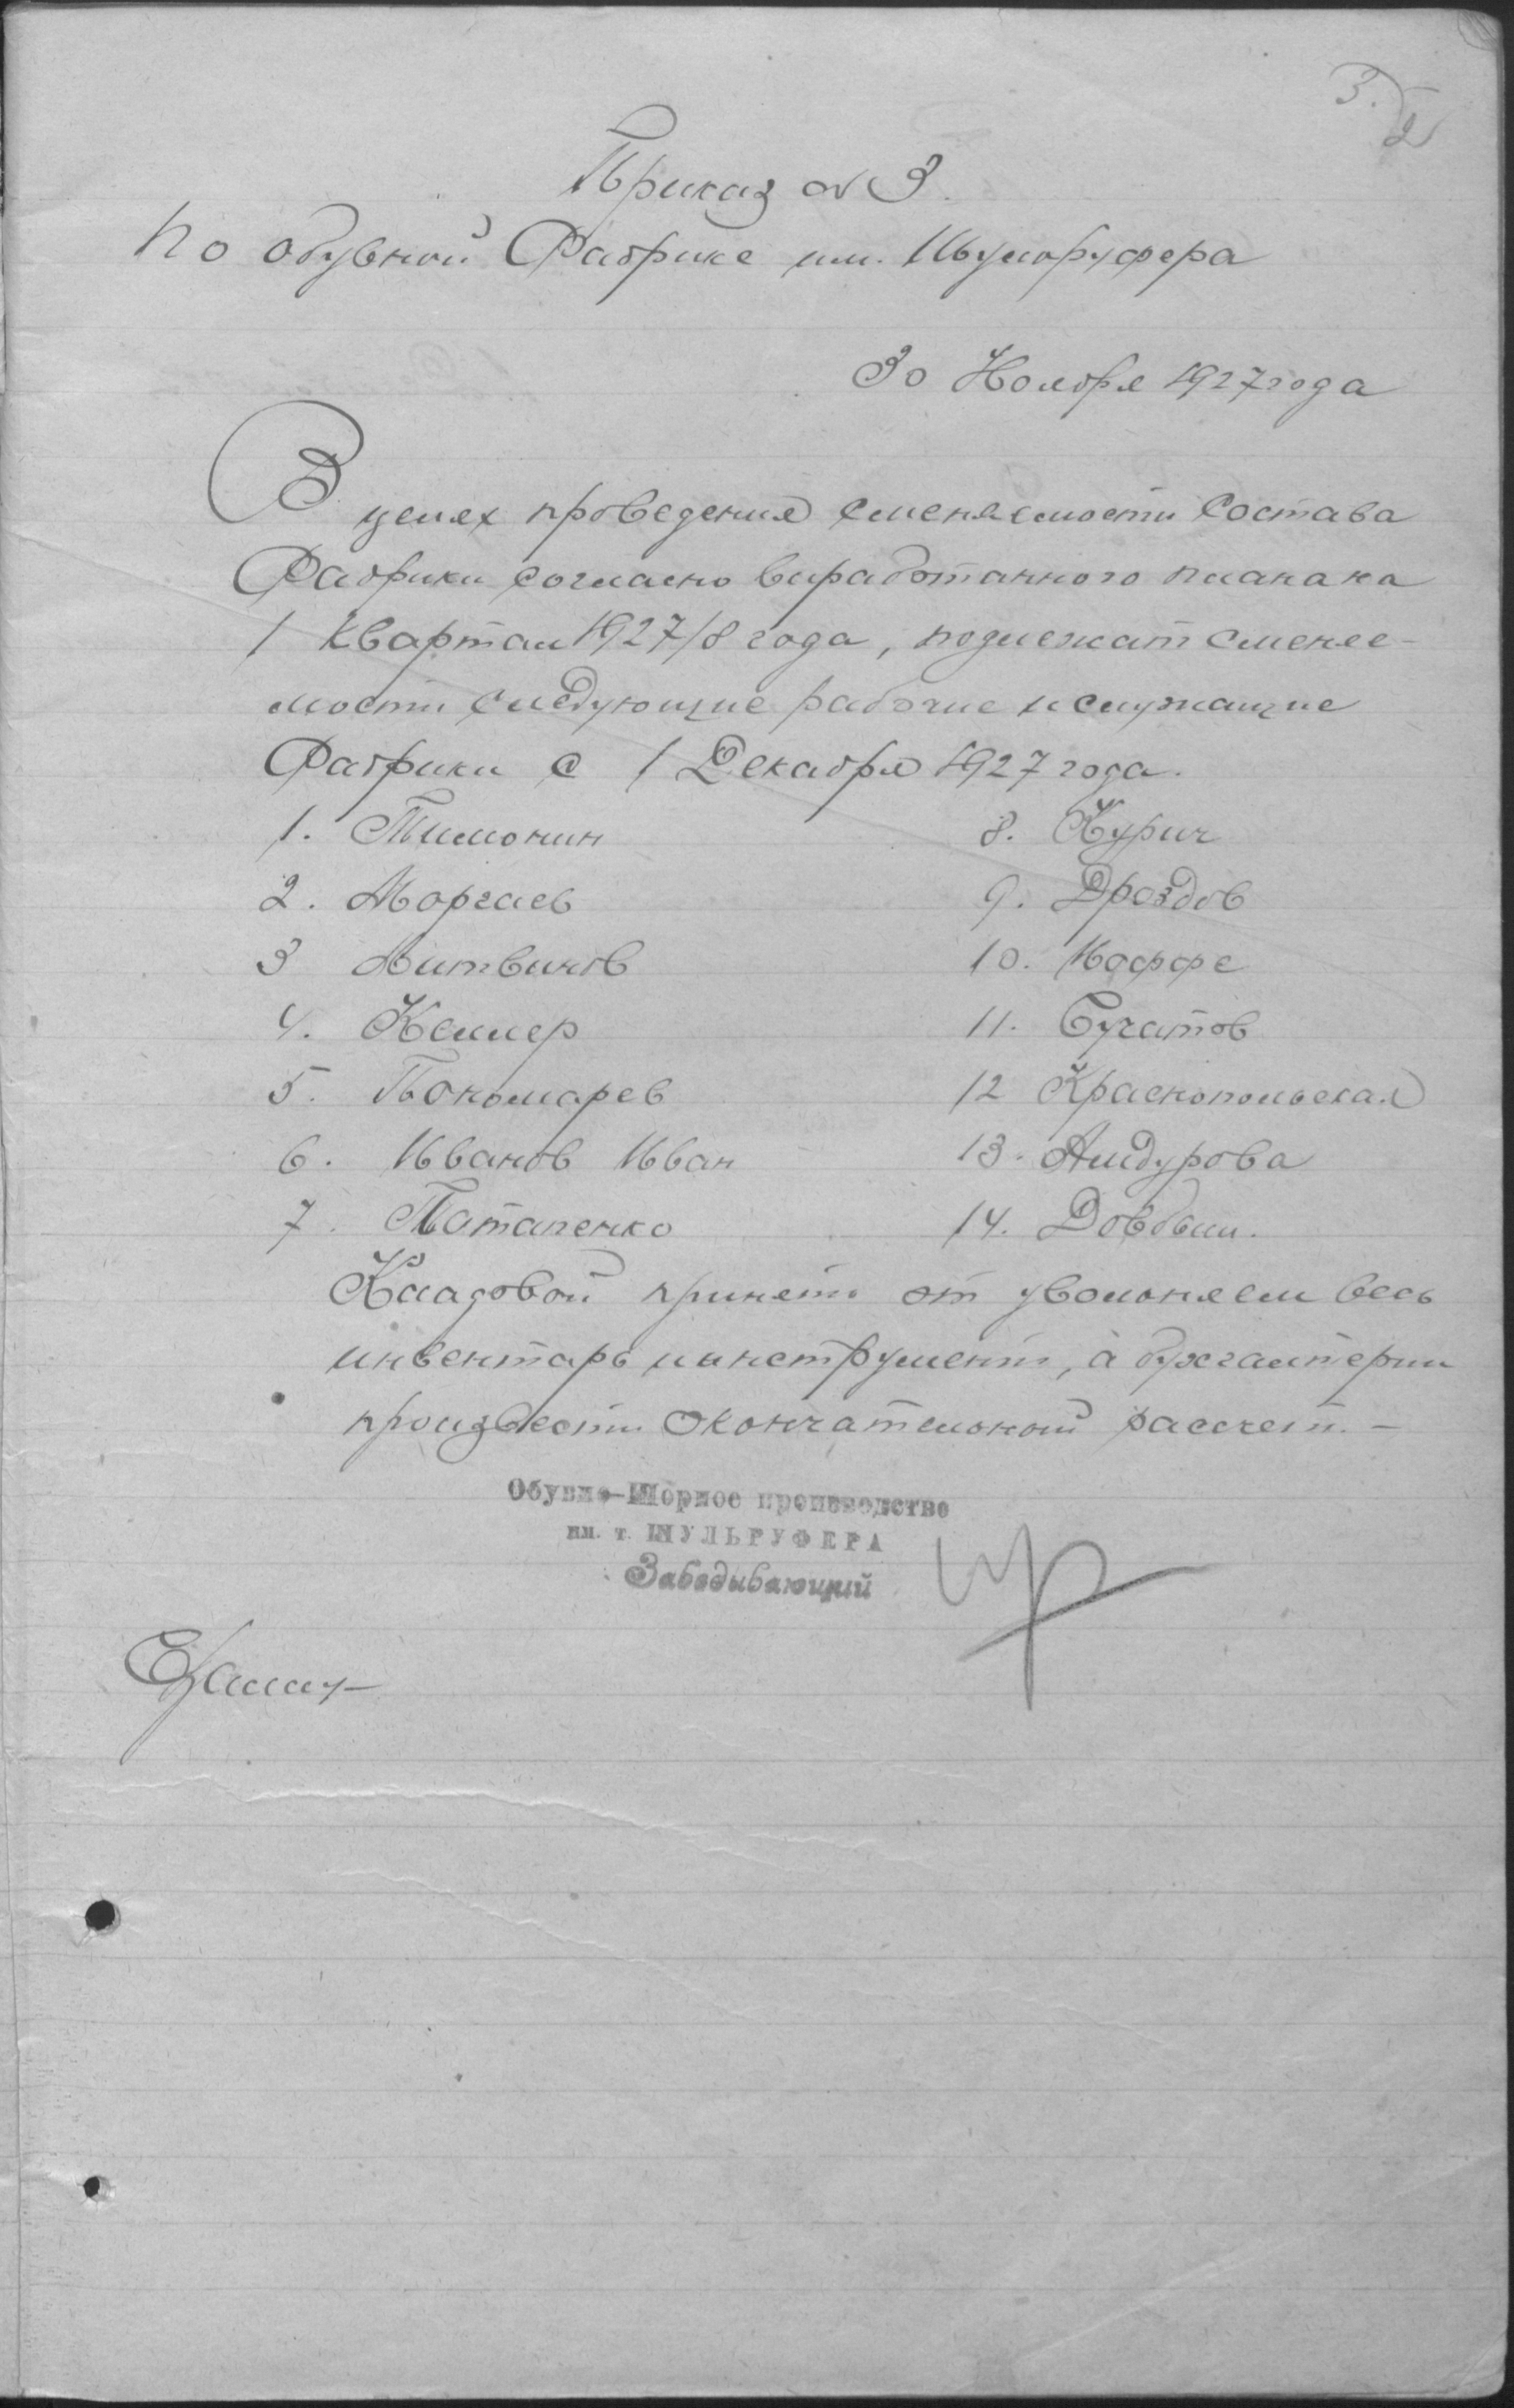 3.
2
Приказ № 3.
По обувной Фабрике им. Шульруфера
30 Ноября 1927 года
В целях проведения сменяемости состава
Фабрики согласно выработанного плана на
1 квартал 1927/8 года, подлежат сменяе-
мости следующие рабочие и служащие
Фабрики с 1 Декабря 1927 года.
1. Тимонин
2. Моргаев
3 Литвинов
4. Келлер
5. Пономарев
6. Иванов Иван
7. Потапенко
8. Курич
9. Дроздов
10. Иоффе
11. Бугатов
12 Краснопольская
13. Айдурова
14. Довбыш.
Кладовой принять от уволоняем весь
инвентарь и инструмент, а бухгалтерии
произвести окончательной рассчет. –
Обувно-Шорное производство
им. т. ШУЛЬРУФЕРА
Заведывающий